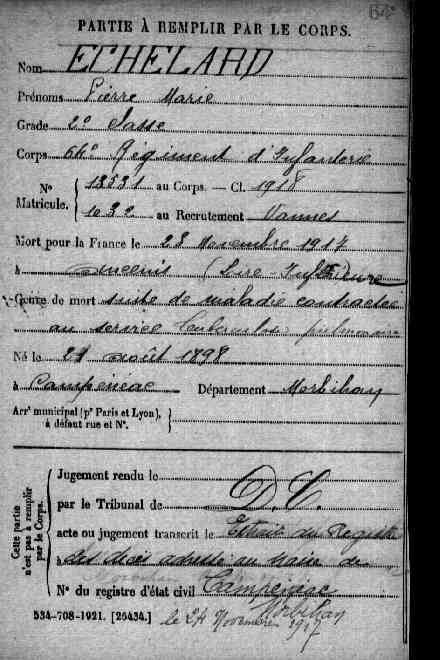 PARTIE À REMPLIR PAR LE CORPS.
Nom ECHELARD
Prénoms Pierre Marie
Grade 2e classe
Corps 64e Régiment d'Infanterie
No Matricule. { 13531 au Corps. — Cl. 1918
1032 au Recrutement Vannes
Mort pour la France le 23 Novembre 1917
à Ancenis (Loire-Inférieure
Genre de mort suite de maladie contractée
au service Tuberculose pulmonaire
Né le 21 août 1898
à Campénéac Département Morbihan
Arrt municipal (pr Paris et Lyon), à défaut rue et No. }
Cette partie n'est pas à remplir par le Corps.
Jugement rendu le
par le Tribunal de D.C.
acte ou jugement transcrit le Extrait du Registre
à des décès adressé au maire de
No du registre d'état civil Campénéac
Morbihan
534-708-1921. [26434.] le 24 Novembre 1917